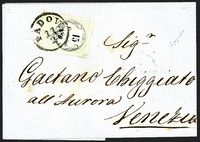 PADOVA
15
Sigr
Gaetano Chiggiato
all'Aurora
Venezia